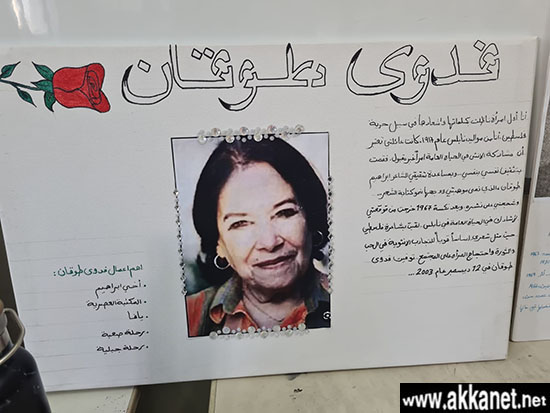 فدوى طوقان
أنا أول امرأة نالت كلماتها واشعارها في سبيل حرية
فلسطين، أنا من مواليد نابلس عام 1917، كانت عائلتي تعتبر
أن مشاركة الانثى في الحياة العامة امراً غير مقبول، فقمت
بتثقيف نفسي بنفسي، وبمساعدة شقيقي الشاعر إبراهيم
طوقان، الذي نمى موهبتي ووجهها نحو كتابة الشعر،
وشجعني على نشره، وبعد نكسة 1967 خرجت من قوقعتي
لأشارك في الحياة العامة في نابلس، لقبت بشاعرة فلسطين
حيث مثل شعري اساساً قوياً للتجارب الانثوية في الحب
والثورة واحتجاج المرأة على المجتمع. توفيت فدوى
طوقان في 12 ديسمبر عام 2003.
اهم اعمال فدوى طوقان:
أخي ابراهيم
المكتبة العصرية
يافا
رحلة صعبة
رحلة جبلية
www.akkanet.net